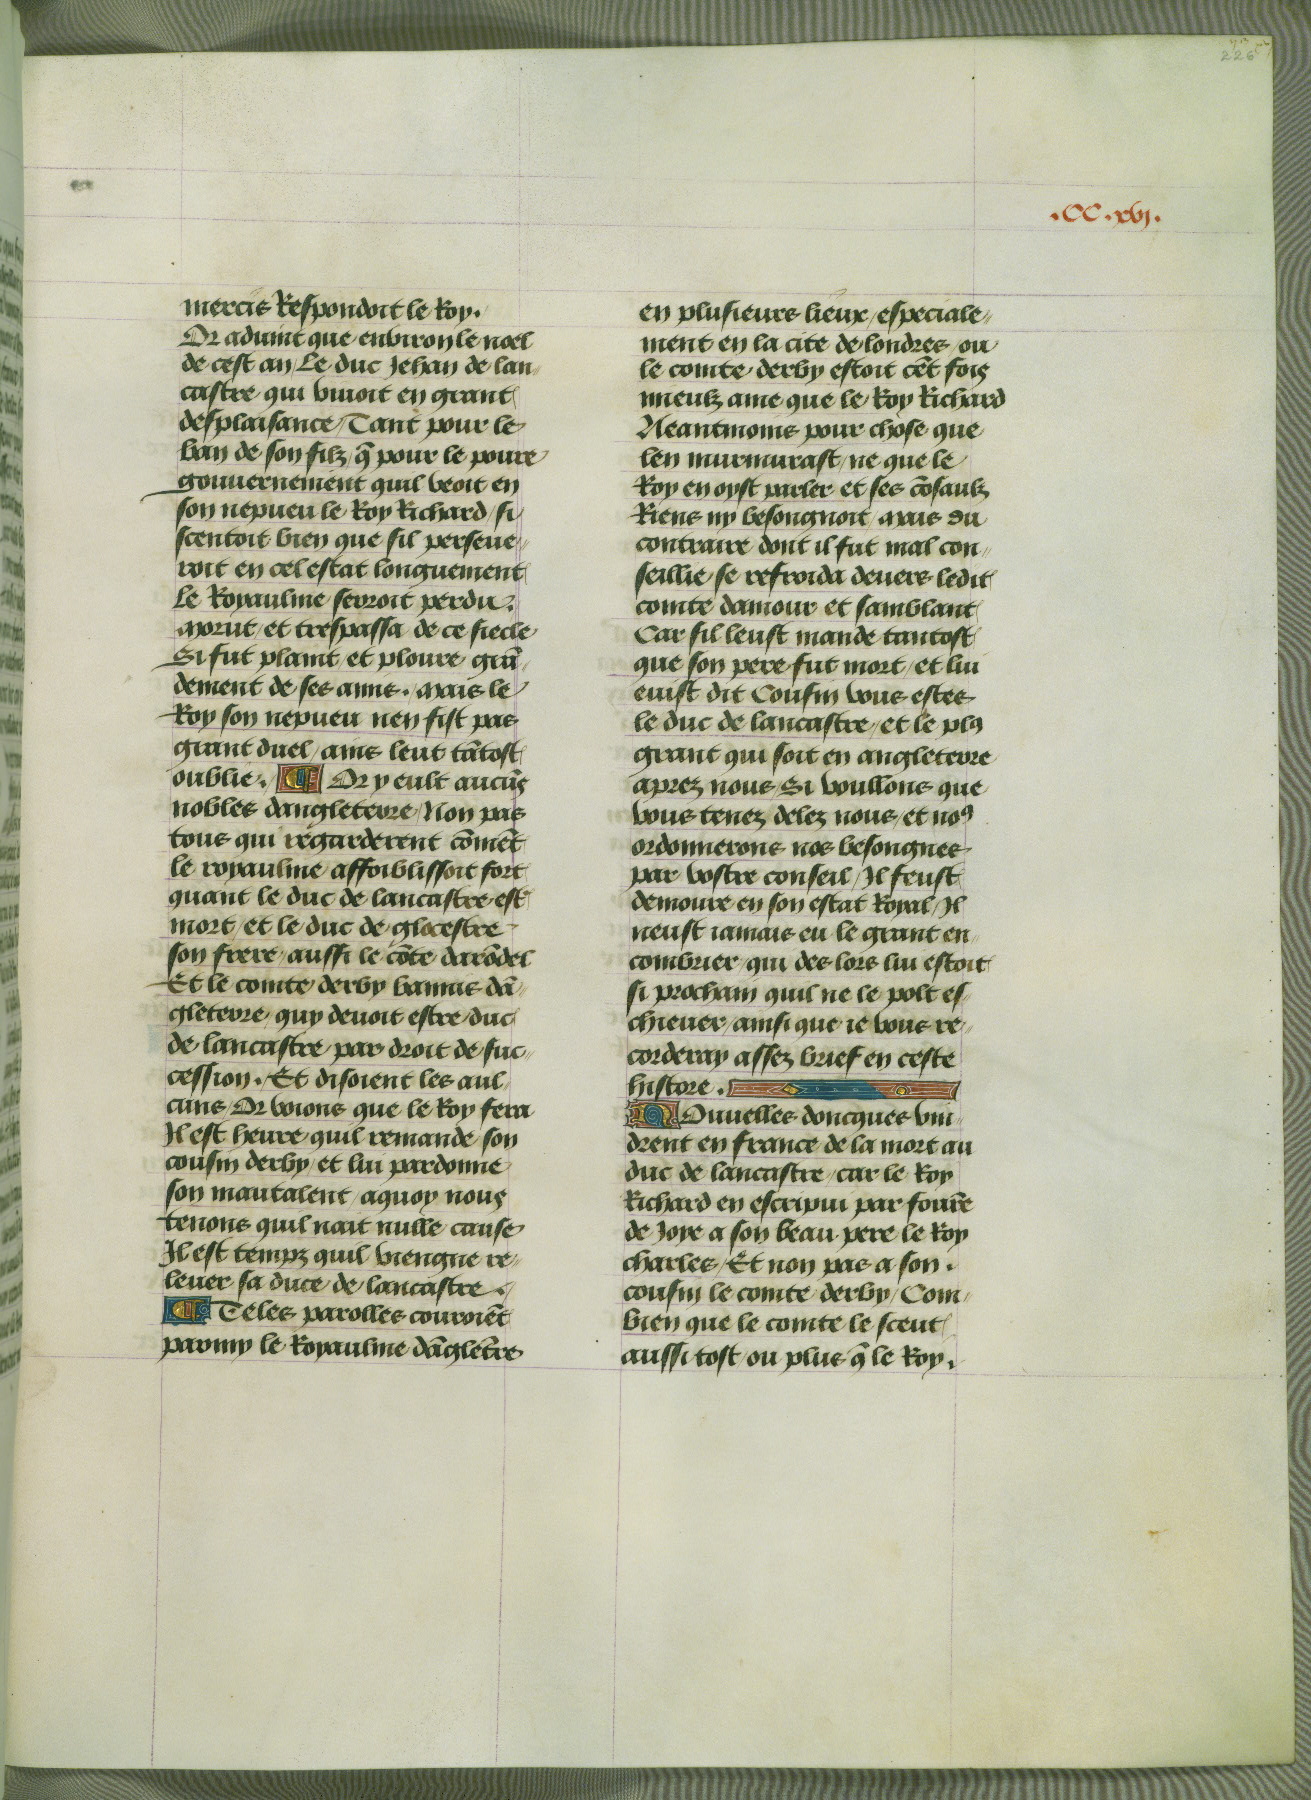 226
.CC.xvj.
mercis Respondoit le Roy.
Or aduint que enuiron le noel
de cest an / Le duc Jehan de lan-
castre qui viuoit en grant
desplaisance / Tant pour le
ban de son filz / q̄ pour le poure
gouuernement quil veoit en
son nepueu le Roy Richard / si
scentoit bien que sil perseue-
roit en cel estat longuement
Le Royaulme seroit perdu.
Morut / et trespassa de ce siecle
Si fut plaint et ploure grā-
dement de ses amis. Mais le
Roy son nepueu nen fist pas
grant duel / ains leut tātost
oublie. Or y eult aucūs
nobles dangleterre / Non pas
tous qui regarderent cōmēt
le royaulme affoiblissoit fort
quant le duc de lancastre est
mort / et le duc de glocestre
son frere / aussi le cōte darōdel
Et le comte derby bannis dā-
gleterre / quy deuoit estre duc
de lancastre par droit de suc-
cession. / Et disoient les aul
cuns / Or voions que le Roy fera
Il est heure / quil remande son
cousin derby / et lui pardonne
son mautalent / aquoy nous
tenons quil nait nulle cause
Il est tempz quil viengne re-
leuer sa duce de lancastre.
Teles parolles couroiēt
parmy le Royaulme dāgletr̄e
en plusieurs lieux / especiale-
ment en la cite de londres / ou
le comte derby estoit cēt fois
mieulz ame que le Roy Richard
Neantmoins pour chose que
len murmurast / ne que le
Roy en oyst parler et ses cōsaulz
Riens ny besongnoit / Mais du
contraire dont il fut mal con-
seillie / se refroida deuers ledit
comte damour et samblant
Car sil leust mande tantost
que son pere fut mort / et lui
euist dit Cousin vous estes
le duc de lancastre / et le plꝯ
grant qui soit en angleterre
aprez nous / Si voullons que
vous tenez delez nous / et noꝯ
ordonnerons nos besongnes
par vostre conseil / Il feust
demoure en son estat Royal / Il
neust iamais eu le grant en-
combrier / qui des lors lui estoit
si prochain quil ne le polt es-
chieuer / ainsi que ie vous re-
corderay assez brief en ceste
histore.
Nouuelles doncques vin-
drent en france de la mort au
duc de lancastre / car le Roy
Richard en escripui par fourr̄e
de Joye a son beau pere le Roy
charles / Et non pas a son
cousin le comte derby / Com-
bien que le comte le sceut
aussi tost ou plus q̄ le Roy.